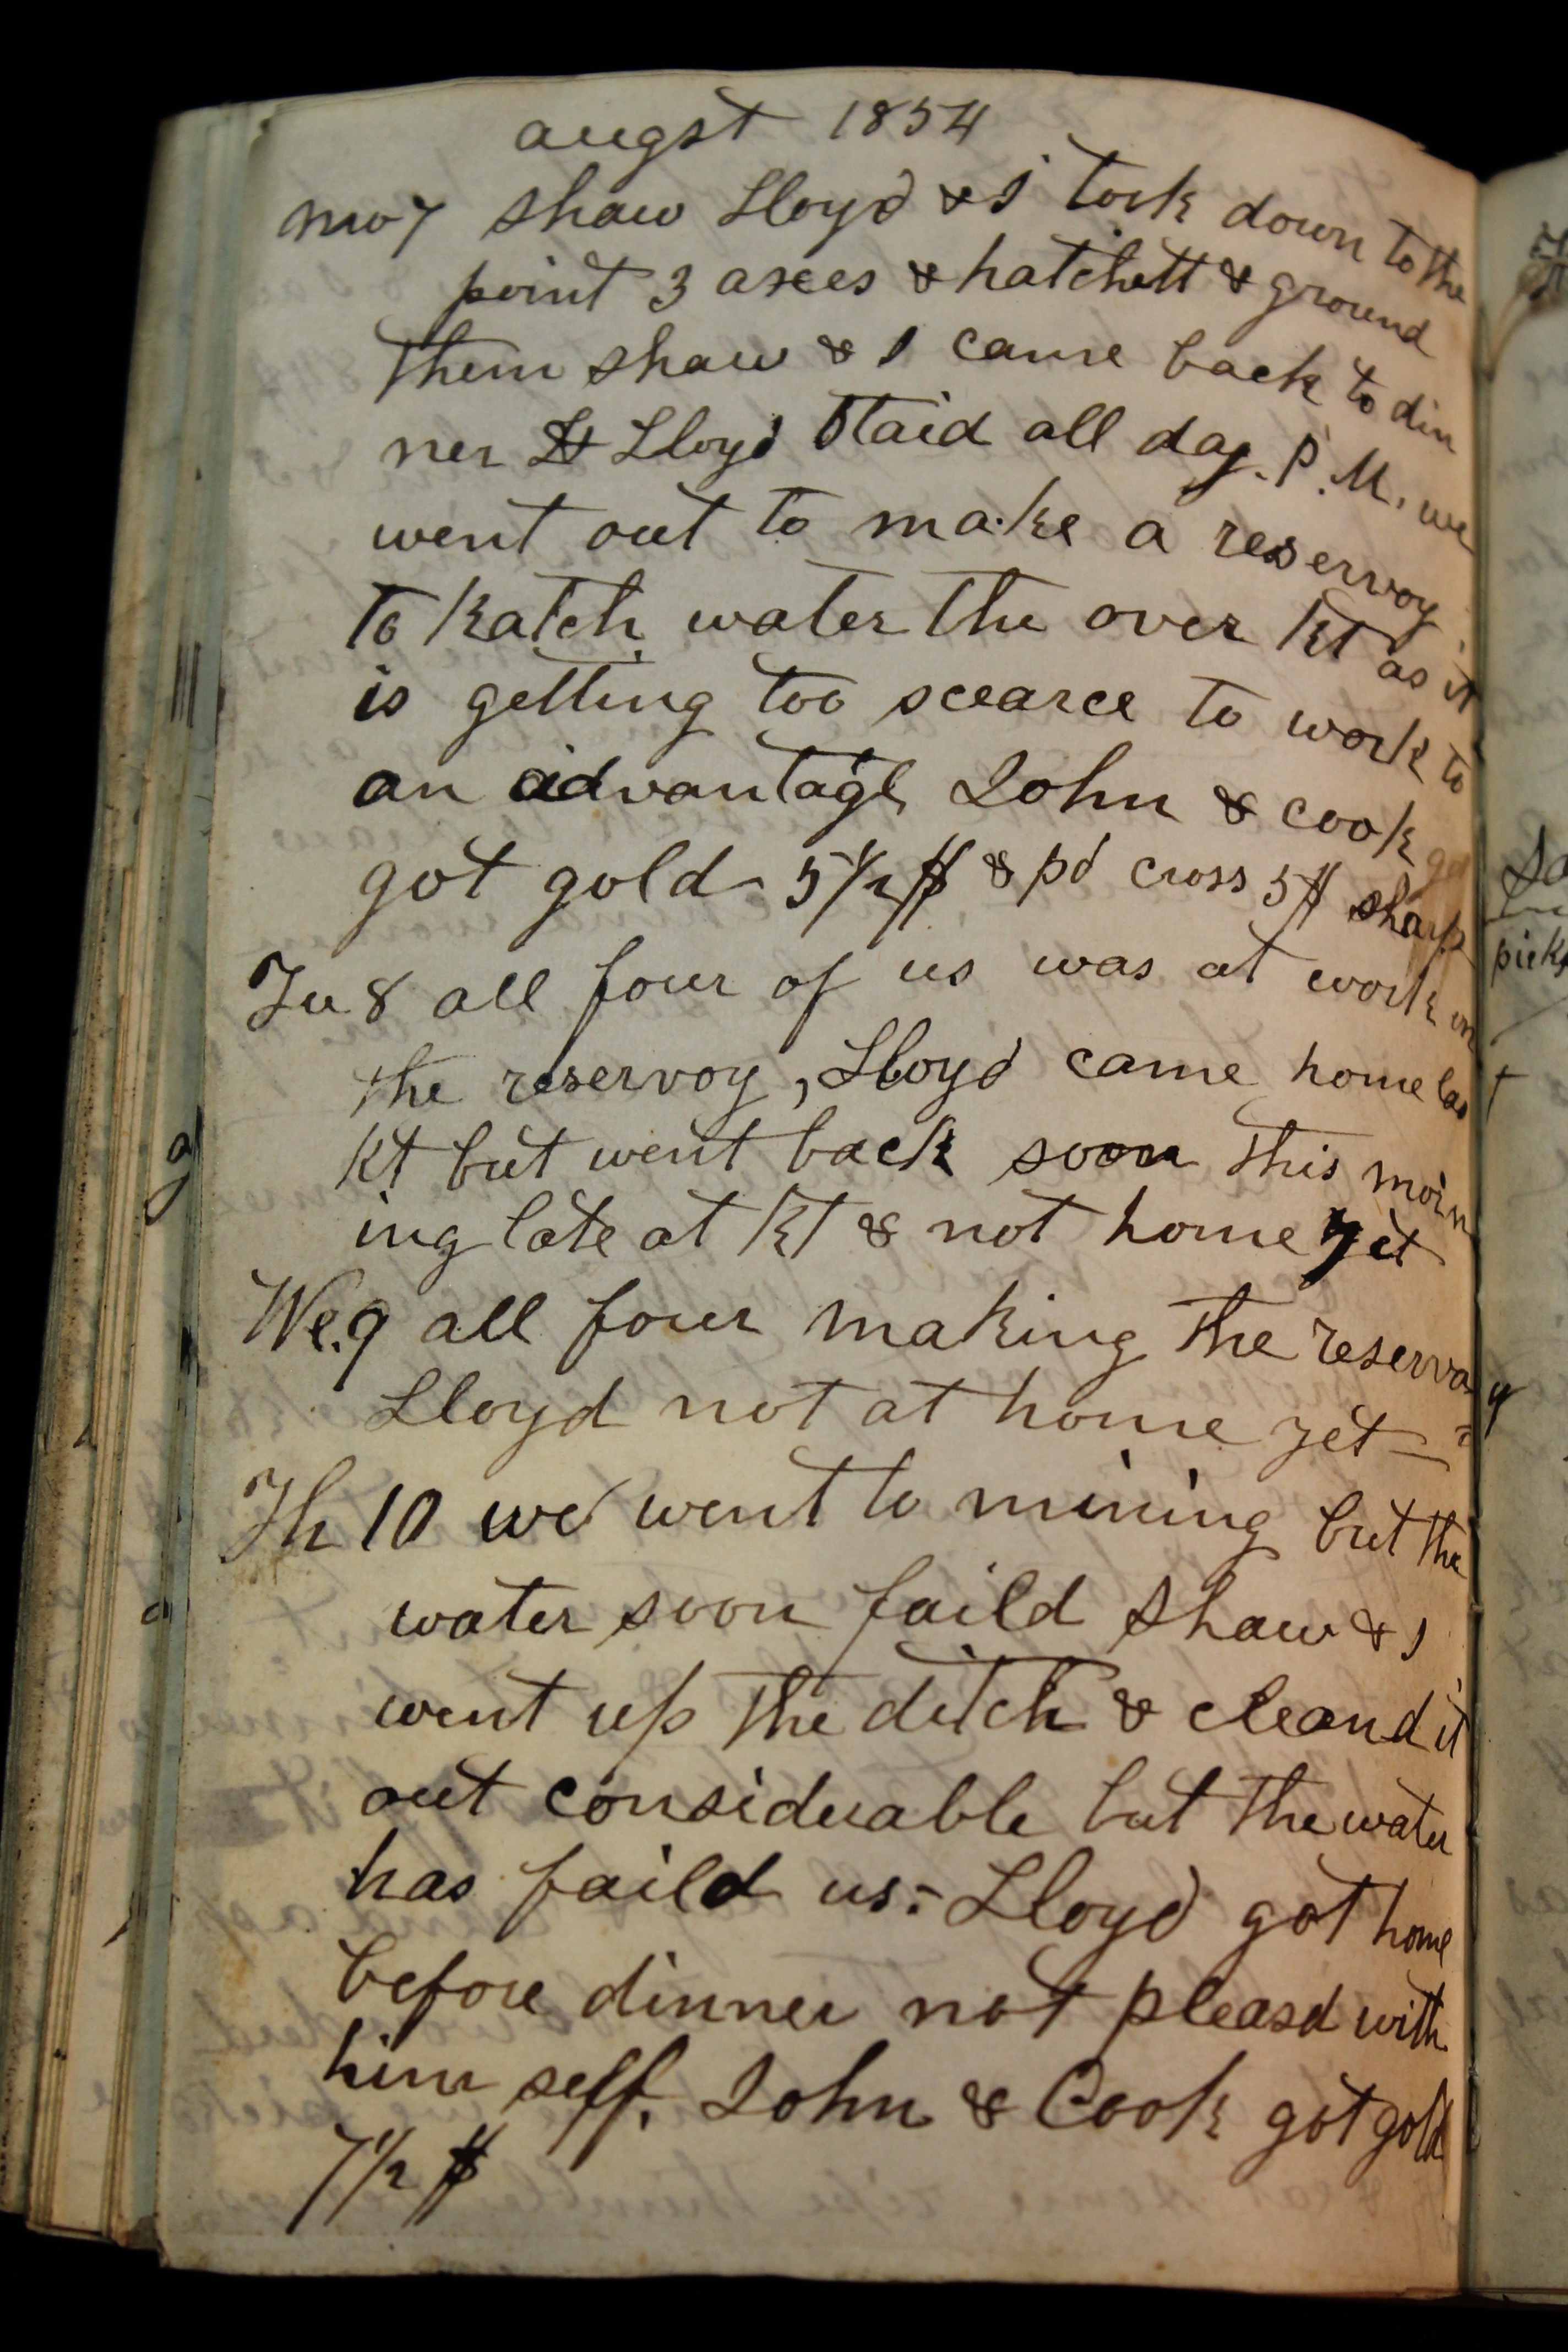 augst 1854
mo 7 Shaw Lloyd & I took down to the
point 3 axees & hatchett & ground
them Shaw & I came back to din
ner Lloyd Staid all day. P.M. we
went out to make a reservoy
to katch water the over kt as it
is getting too scearce to work to
an advantage John & cook
got gold 5 1/2 $ & pd cross 5 $ sharp
picks
Tu 8 all four of us was at work on
the reservoy, Lloyd came home las
t
kt but went back soon this morn
ing late at kt & not home yet
We. 9 all four making the reservo
y
Lloyd not at home yet
Th 10 we went to mining but the
water soon faild Shaw & I
went up the ditch & cleand it
out considerable but the water
has faild us:- Lloyd got home
before dinner not pleasd with
him self. John & Cook got gold
7 1/2 $